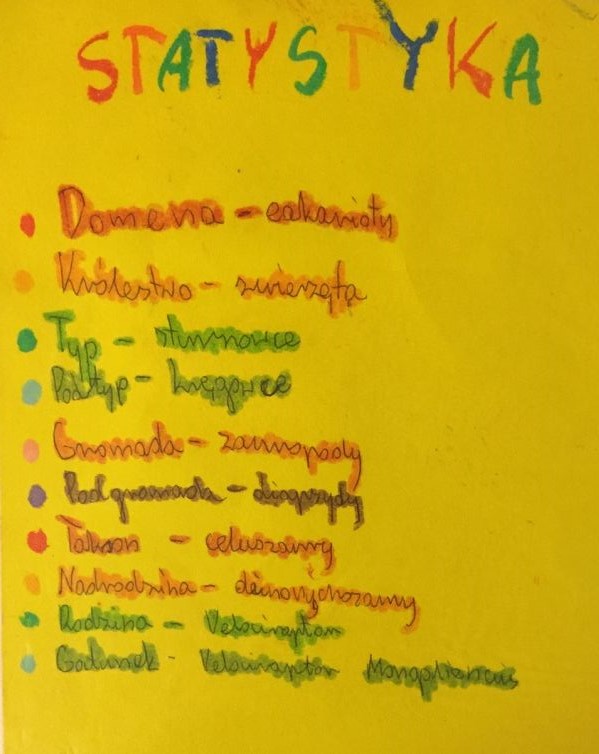 STATYSTYKA
Domena - eukarioty
Królestwo - zwierzęta
Typ - strunowce
Podtyp - kręgowce
Gromada - zauropsydy
Podgromada - diapsydy
Takson - celurozaury
Nadrodzina -
Rodzina - Velociraptor
Gatunek - Velociraptor